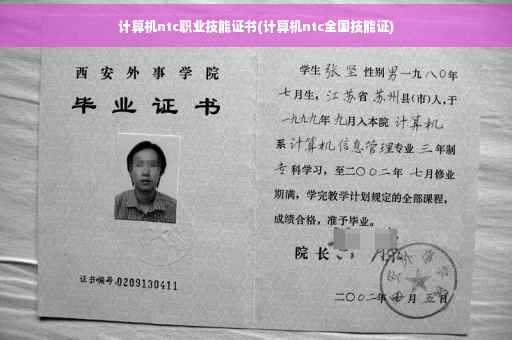 计算机ntc职业技能证书(计算机ntc全国技能证)
西安外事学院
毕业证书
证书编号:0209130411
学生 张坚 性别 男 一九八〇年
七月生, 江苏省 苏州 县(市)人,于
一九九九年 九月入本院 计算机
系 计算机信息管理 专业 三 年制
专 科学习,至二〇〇二年 七月修业
期满,学完教学计划规定的全部课程,
成绩合格,准予毕业。
院长
二〇〇二年 月 五 日